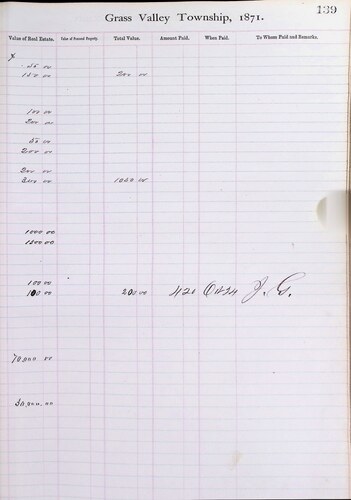 139
Grass Valley Township, 1871.
Value of Real Estate. Value of Personal Property. Total Value. Amount Paid. When Paid. To Whom Paid and Remarks.
50 00
150 00 200 00
100 00
50 00
2000 00
1000 00
1500 00
100 00
100 00 200 00 4 20 Oct 24 J. G.
70,000 00
30,000.00